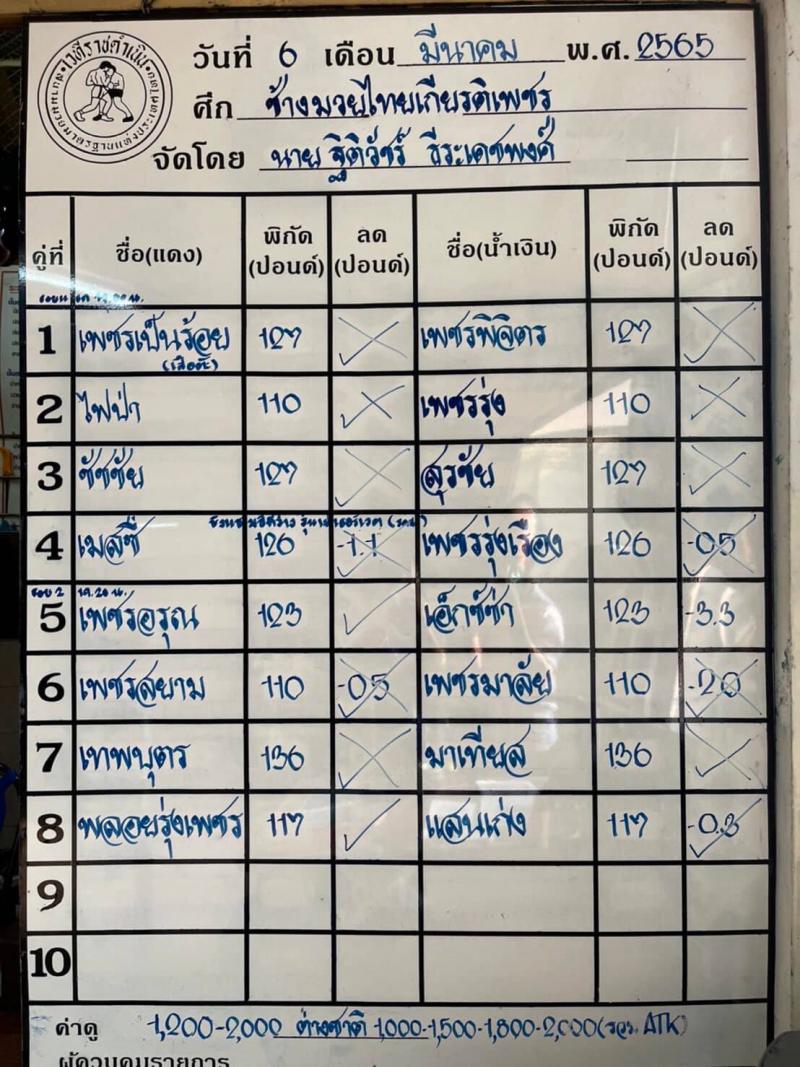 เวทีราชดำเนิน
สนามมวยมาตรฐานแห่งประเทศไทย
วันที่ 6 เดือน มีนาคม พ.ศ. 2565
ศึก ช้างมวยไทยเกียรติเพชร
จัดโดย นาย ฐิติวัชร์ ธีระเดชพงศ์
คู่ที่ ชื่อ(แดง) พิกัด (ปอนด์) ลด (ปอนด์) ชื่อ(น้ำเงิน) พิกัด (ปอนด์) ลด (ปอนด์)
1 เพชรเป็นร้อย 127 เพชรพิจิตร 127
2 ไฟป่า 110 เพชรรุ่ง 110
3 ชัชชัย 127 สุรชัย 127
4 เมสซี่ 126 -1.1 เพชรรุ่งเรือง 126 -0.5
รอบ 2 19.20 น.
5 เพชรอรุณ 123 เอ็กซ์ซ่า 123 -3.3
6 เพชรสยาม 110 -0.5 เพชรมาลัย 110 -2.0
7 เทพบุตร 136 มาเทียส 136
8 พลอยรุ่งเพชร 117 แสนเก่ง 117 -0.3
9
10
ค่าดู 1,200-2,000 ต่างชาติ 1,000-1,500-1,800-2,000 (รวม ATK)
ผู้ควบคุมรายการ